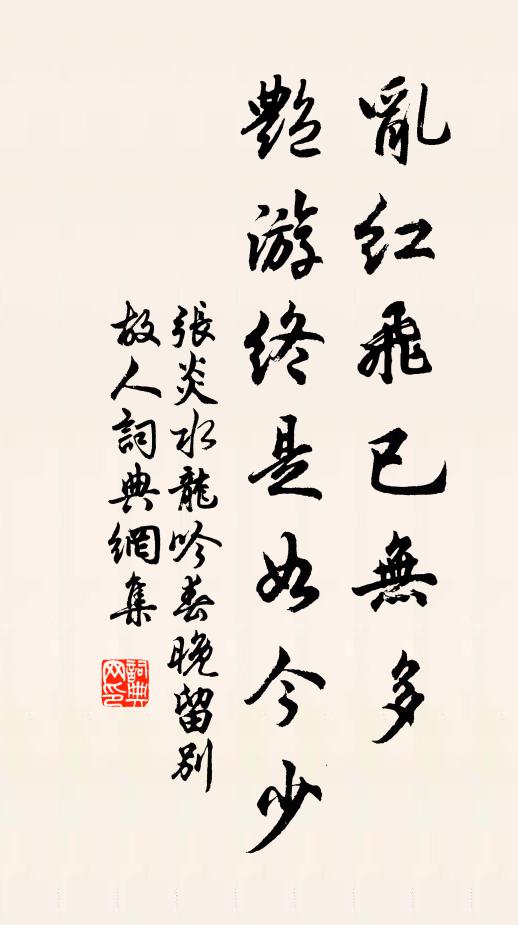 亂紅飛已無多
艷游終是如今少
張炎水龍吟春晚留別
故人詞典網集
詞典网印